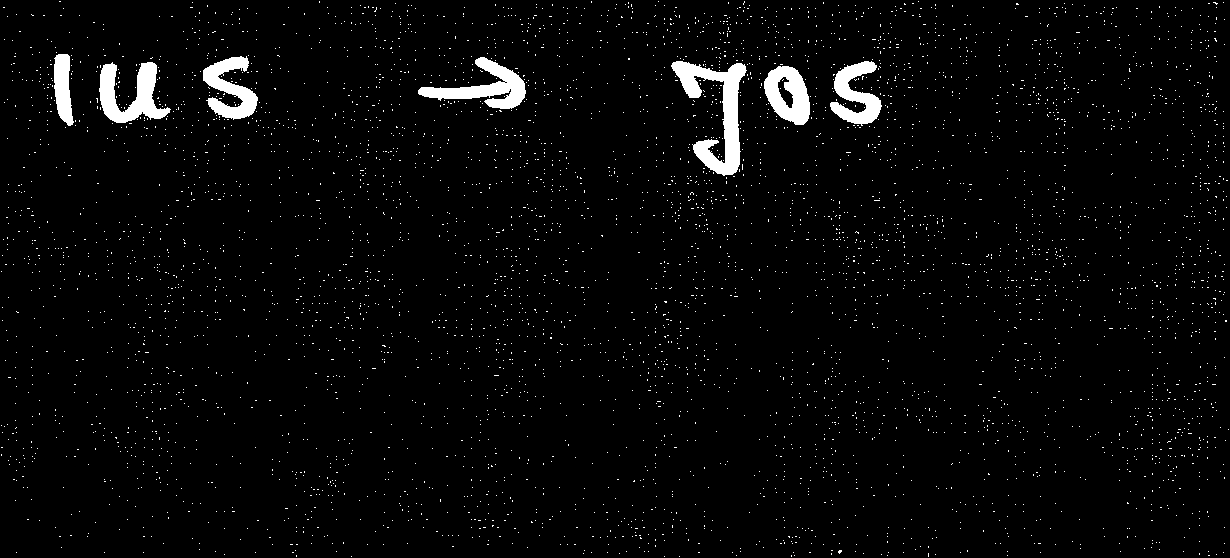 ius → jos